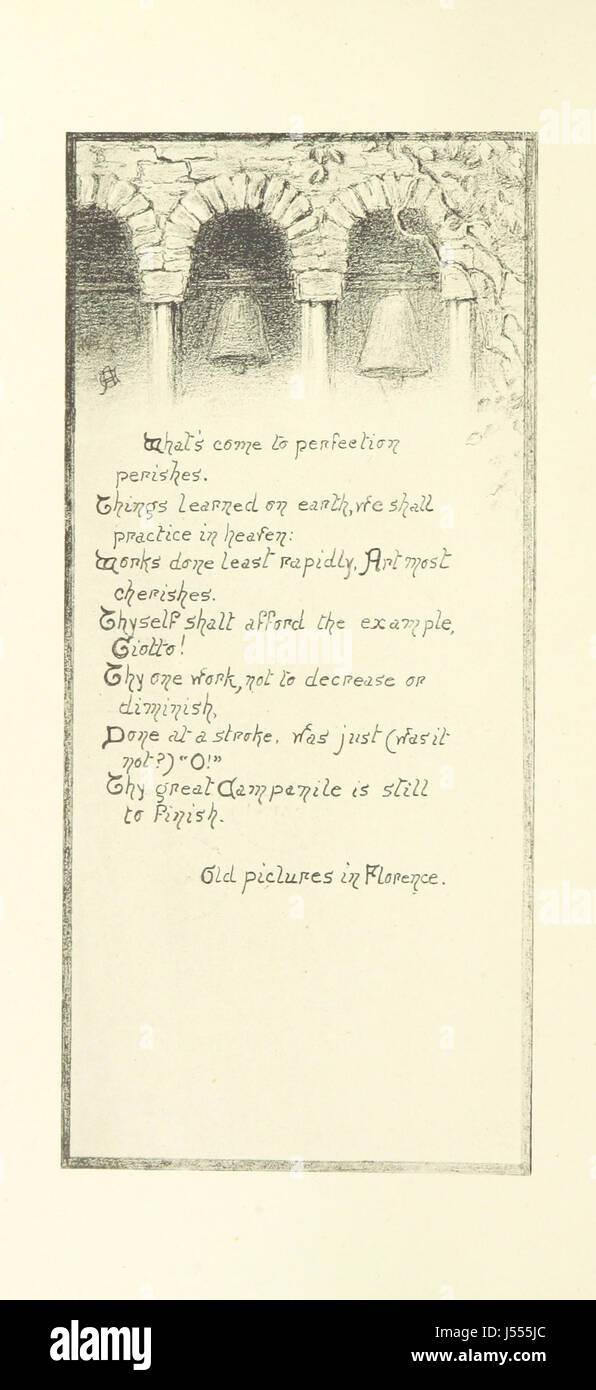 What's come to perfection
perishes.
Things learned on earth, we shall
practice in heaven:
Works done least rapidly, Art most
cherishes.
Thyself shalt afford the example,
Giotto!
Thy one work, not to decrease or
diminish,
Done at a stroke, was just (was it
not?) "O!"
Thy great Campanile is still
to finish.
Old pictures in Florence.
alamy
alamy stock photo
J555JC
www.alamy.com